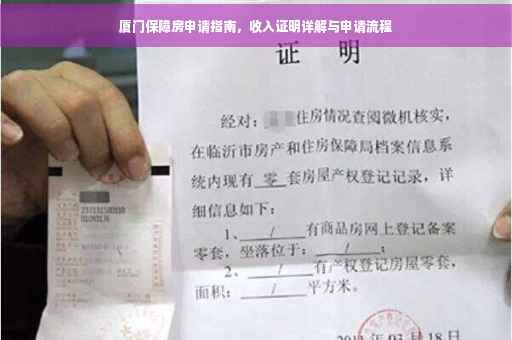 厦门保障房申请指南，收入证明详解与申请流程
证 明
经对：住房情况查阅微机核实，
在临沂市房产和住房保障局档案信息系
统内现有 零 套房屋产权登记记录，详
细信息如下：
1、 / 有商品房网上登记备案
零套，坐落位于： / ；
2、 / 有产权登记房屋零套，
面积： / 平方米。
月 18 日